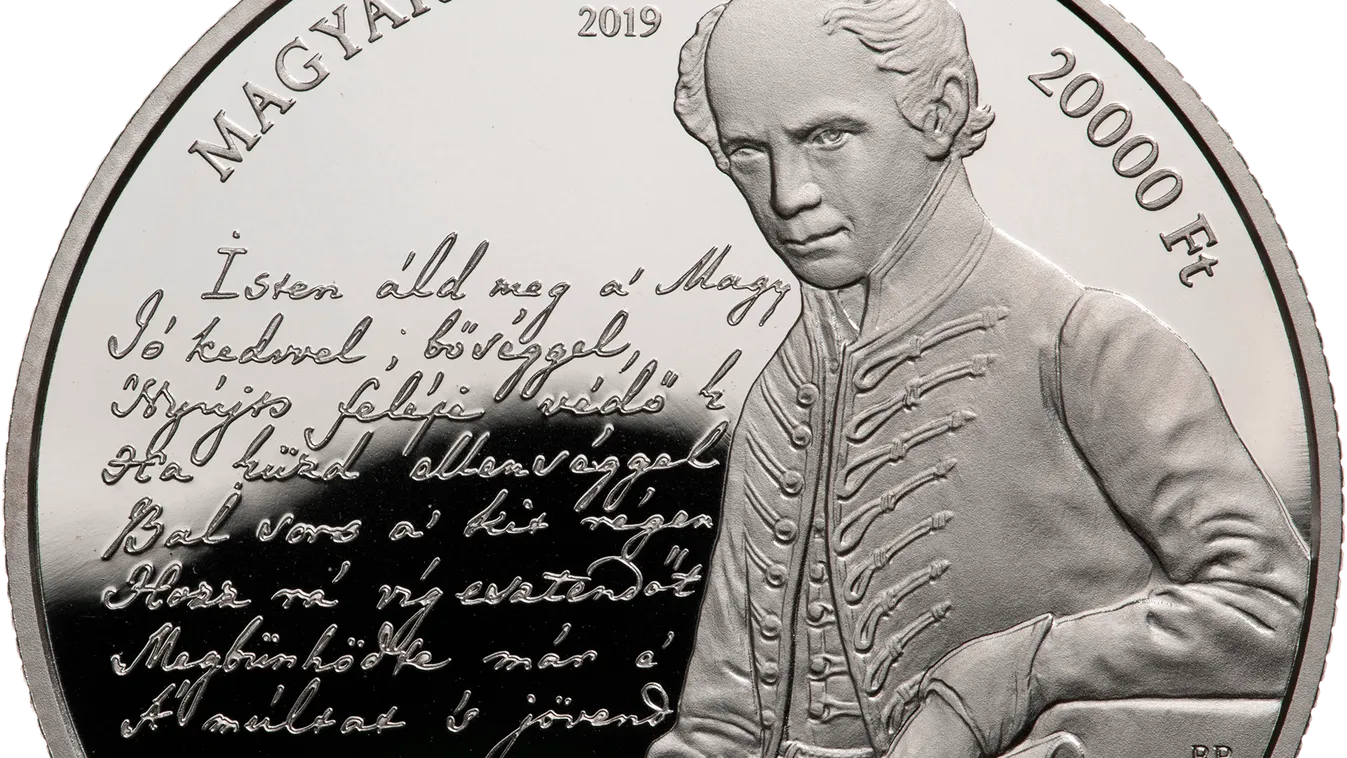 MAGYAR
2019
20000 Ft
Isten áld meg a' Magy
Jó kedvvel, bőséggel,
Nyújts feléje védő k
Ha küzd ellenséggel
Bal sors a' kit régen
Hozz rá víg esztendőt
Megbűnhődte már é
A' múltat 's jövend
BP